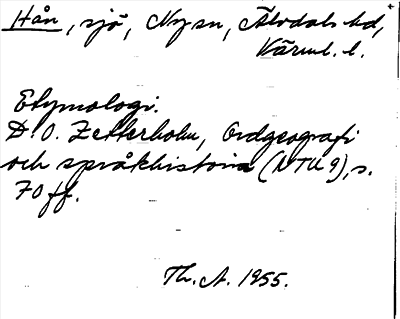 Hån, sjö, Ny sn, Älvdals hd,
Värml. l.
Etymologi.
D. O. Zetterholm, Ordgeografi
och språkhistoria (NTU 9), s.
70 ff.
Th. A. 1955.